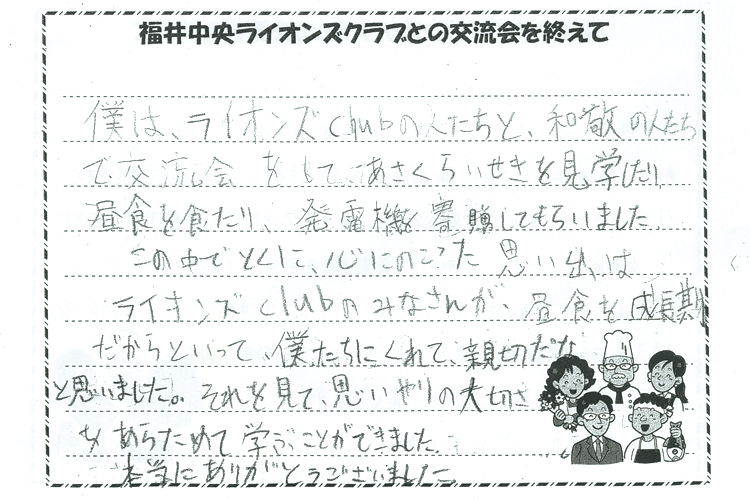 福井中央ライオンズクラブとの交流会を終えて
僕は、ライオンズclubの人たちと、和敬の人たち
で交流会をして、あさくらいせきを見学したり、
昼食を食たり、発電機を寄贈してもらいました
この中でとくに、心にのこった思い出は
ライオンズclubのみなさんが、昼食を成長期
だからといって、僕たちにくれて、親切だな
と思いました。それを見て、思いやりの大切さ
をあらためて学ぶことができました。
本当にありがとうございました。